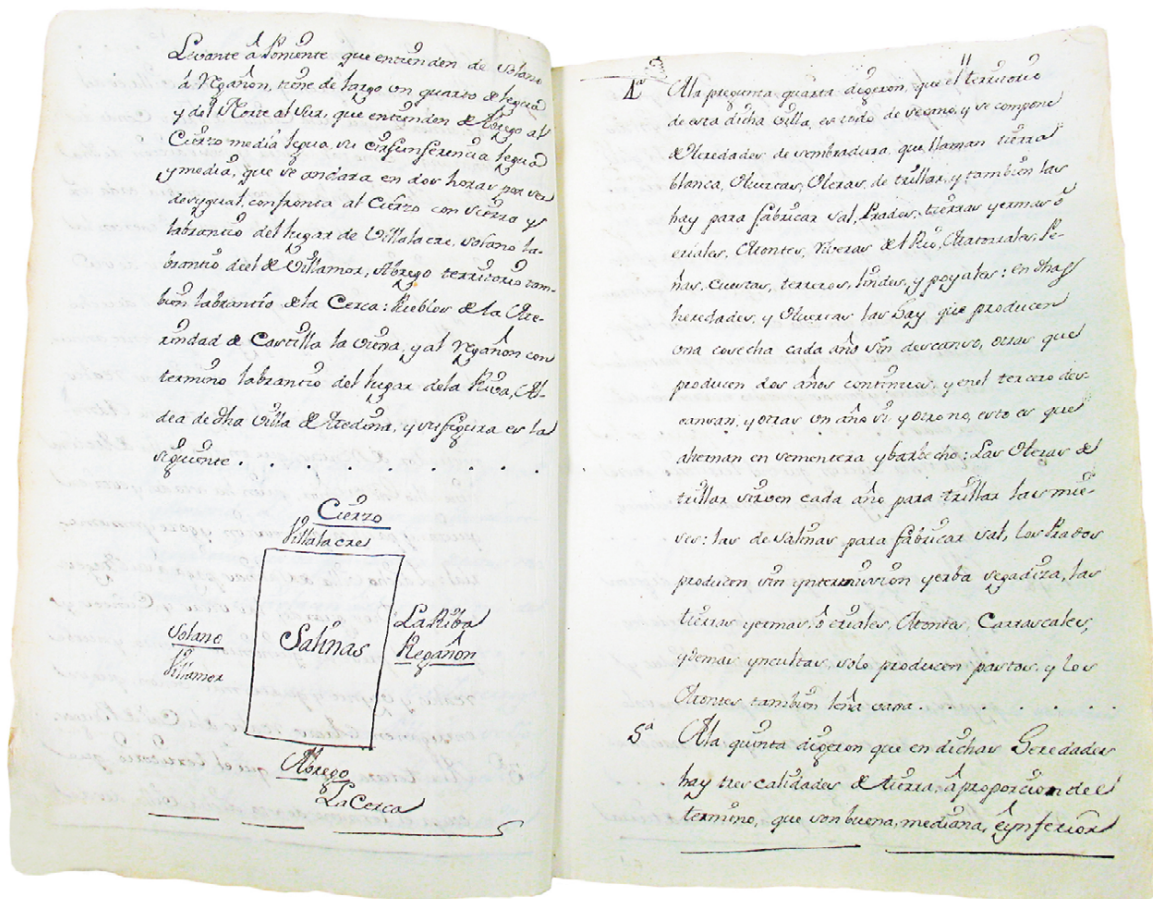 Levante â Poniente que entienden de Solano
á Regañon, tiene de largo un quarto de legua
y del Norte al Sur, que entienden de Abrego al
Cierzo media legua, su circunferencia legua
y media, que se andara en dos horas por ser
desygual, confronta al Cierzo con Sierro y
labrancio del lugar de Villalacre, Solano la-
brancio del de Villamor, Abrego territorio tam-
bien labrancio de la Cerca: Pueblos de la Me-
rindad de Castilla la Vieja, y al Regañon con
termino labrancio del lugar dela Riva, Al-
dea de dha Villa de Medina, y su figura es la
siguiente . . . . . . . . .
Cierzo
Villalacre
Solano
Villamor
Salinas
La Riba
Regañon
Abrego
La Cerca
4ª Ala pregunta quarta digeron, que el territorio
de esta dicha Villa, es todo de secano, y se compone
de heredades de sembradura, que llaman tierra
blanca, Huertas, Heras, de trillar, y tambien las
hay para fabricar sal, Prados, tierras yermas ô
eriales, Montes, Riveras del Rio, Matorrales, Pe-
ñas, cuestas, terreros, lindes, y poyales: en dhas
heredades, y Huertas las hay que producen
una cosecha cada año sin descanso, otras que
producen dos años continuos, y enel tercero des-
cansan, y otras un año si y otro no, esto es que
alternan en sementera y barbecho: Las Heras de
trillar sirven cada año para trillar las mie-
ses: las de Salinas para fabricar sal, Los Prados
producen sin yntermission yerba segadiza, las
tierras yermas, ô eriales, Montes, Carrascales,
y demas yncultas, solo producen pastos, y los
Montes tambien leña . . . . . .
5ª Ala quinta digeron que en dichas Heredades
hay tres calidades de tierra, â proporcion del
termino, que son buena, mediana, ê ynferior